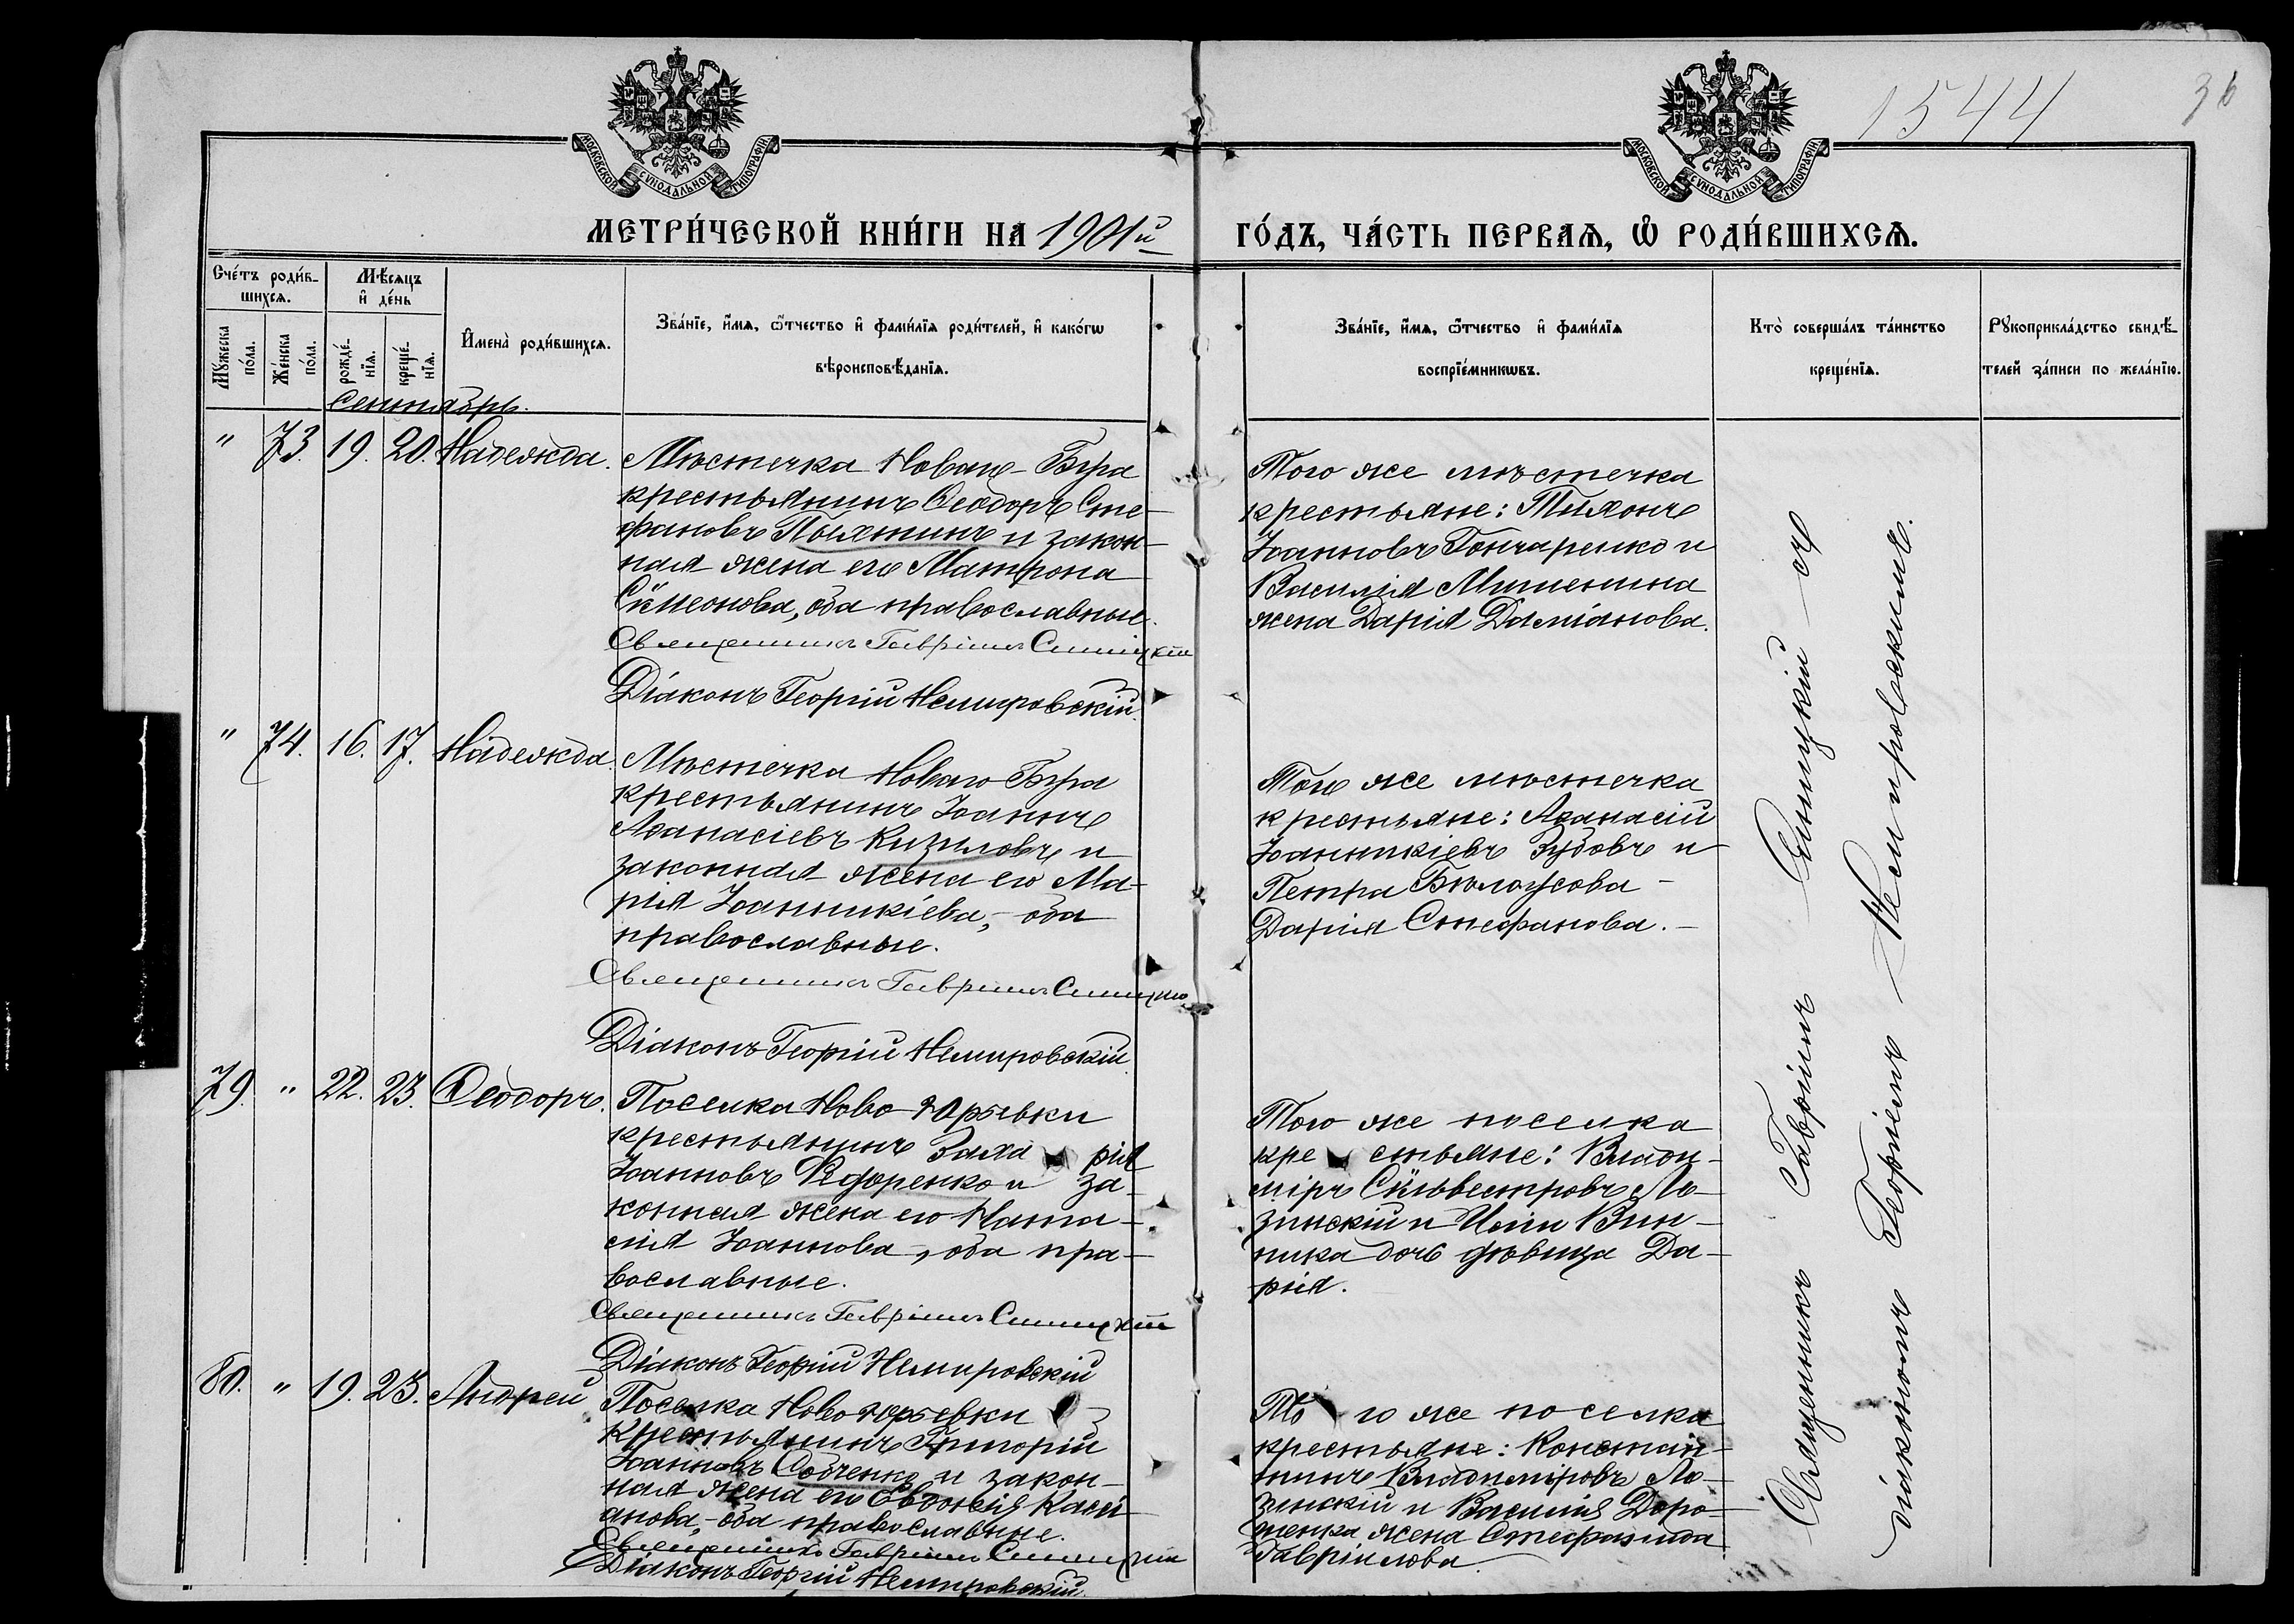 МОСКОВСКОЙ СѴНОДАЛЬНОЙ ТИПОГРАФІИ
МОСКОВСКОЙ СѴНОДАЛЬНОЙ ТИПОГРАФІИ
1544
36
МЕТРИ́ЧЕСКОЙ КНИ́ГИ НА 1901й
ГО́ДЪ, ЧА́СТЬ ПЕРВАѦ, Ѡ РОДИ́ВШИХСѦ.
Сче́тъ роди́в-
шихсѧ.
Мѣ́сѧцъ
и҆ де́нь
Мꙋ́жеска
по́ла.
Же́нска
по́ла.
рожде́-
нїѧ.
креще́-
нїѧ.
И҆мена̀ роди́вшихсѧ.
Зва́нїе, и҆́мѧ, ѻ҆́тчество и҆ фами́лїѧ роди́телей, и҆ како́гѡ
вѣроисповѣ́данїѧ.
Зва́нїе, и҆́мѧ, ѻ҆́тчество и҆ фами́лїѧ
воспрїе́мникѡвъ.
Кто̀ соверша́лъ та́инство
креще́нїѧ.
Рꙋкоприкла́дство свидѣ́-
телей за́писи по жела́нїю.
Сентябрь.
" 73. 19. 20. Надежда.
Мѣстечка Новаго-Буга
крестьянинъ Ѳеодоръ Сте-
фановъ Пыхтинъ и закон-
ная жена его Матрона
Сѵмеонова, оба православные.
Священникъ Гавріилъ Синицкій
Діаконъ Георгій Немировскій.
Того же мѣстечка
крестьяне: Тихонъ
Іоанновъ Гончаренко и
Василія Мишенина
жена Дарія Даміанова.
" 74. 16. 17. Надежда.
Мѣстечка Новаго Буга
крестьянинъ Іоаннъ
Аѳанасіевъ Кизиловъ и
законная жена его Ма-
рія Іоанникіева, - оба
православные.
Священникъ Гавріилъ Синицкій
Діаконъ Георгій Немировскій.
Того же мѣстечка
крестьяне: Аѳанасій
Іоанникіевъ Зубовъ и
Петра Бѣлоусова -
Дарія Стефанова. -
79. " 22. 23. Ѳеодоръ.
Поселка Ново-Юрьевки
крестьянинъ Заха рія
Іоанновъ Ѳедоренко и за-
конная жена его Ната-
лія Іоаннова, оба пра-
вославные.
Священникъ Гавріилъ Синицкій
Діаконъ Георгій Немировскій
Того же поселка
кре стьяне: Влади-
міръ Сѵльвестровъ Ло-
зинскій и Иліи Вин-
ника дочь дѣвица Да-
рія.
80. " 19. 23. Андрей
Поселка Ново Юрьевки
крестьянинъ Григорій
Іоанновъ Собченко и закон-
ная жена его Евдокія Касі-
анова, - оба православные.
Священникъ Гавріилъ Синицкій
Діаконъ Георгій Немировскій.
То го же поселка
крестьяне: Констан-
тинъ Владиміровъ Ло-
зинскій и Василія Доро-
шенка жена Стефанида
Гавріилова.
Священникъ Гавріилъ Синицкій съ
діакономъ Георгіемъ Немировскимъ.